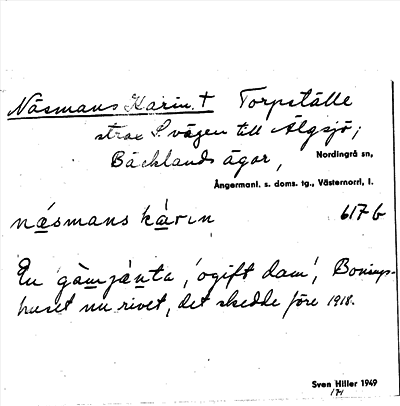 Näsmans Karin. † Torpställe
strax S. vägen till Älgsjö;
Bäcklands ägor,
Nordingrå sn,
Ångermanl. s. doms. tg., Västernorrl, l.
näsmans kàrın 617 b
En gàmjänta, 'ogift dam'; Bonings-
huset nu rivet, det skedde före 1918.
Sven Hiller 1949